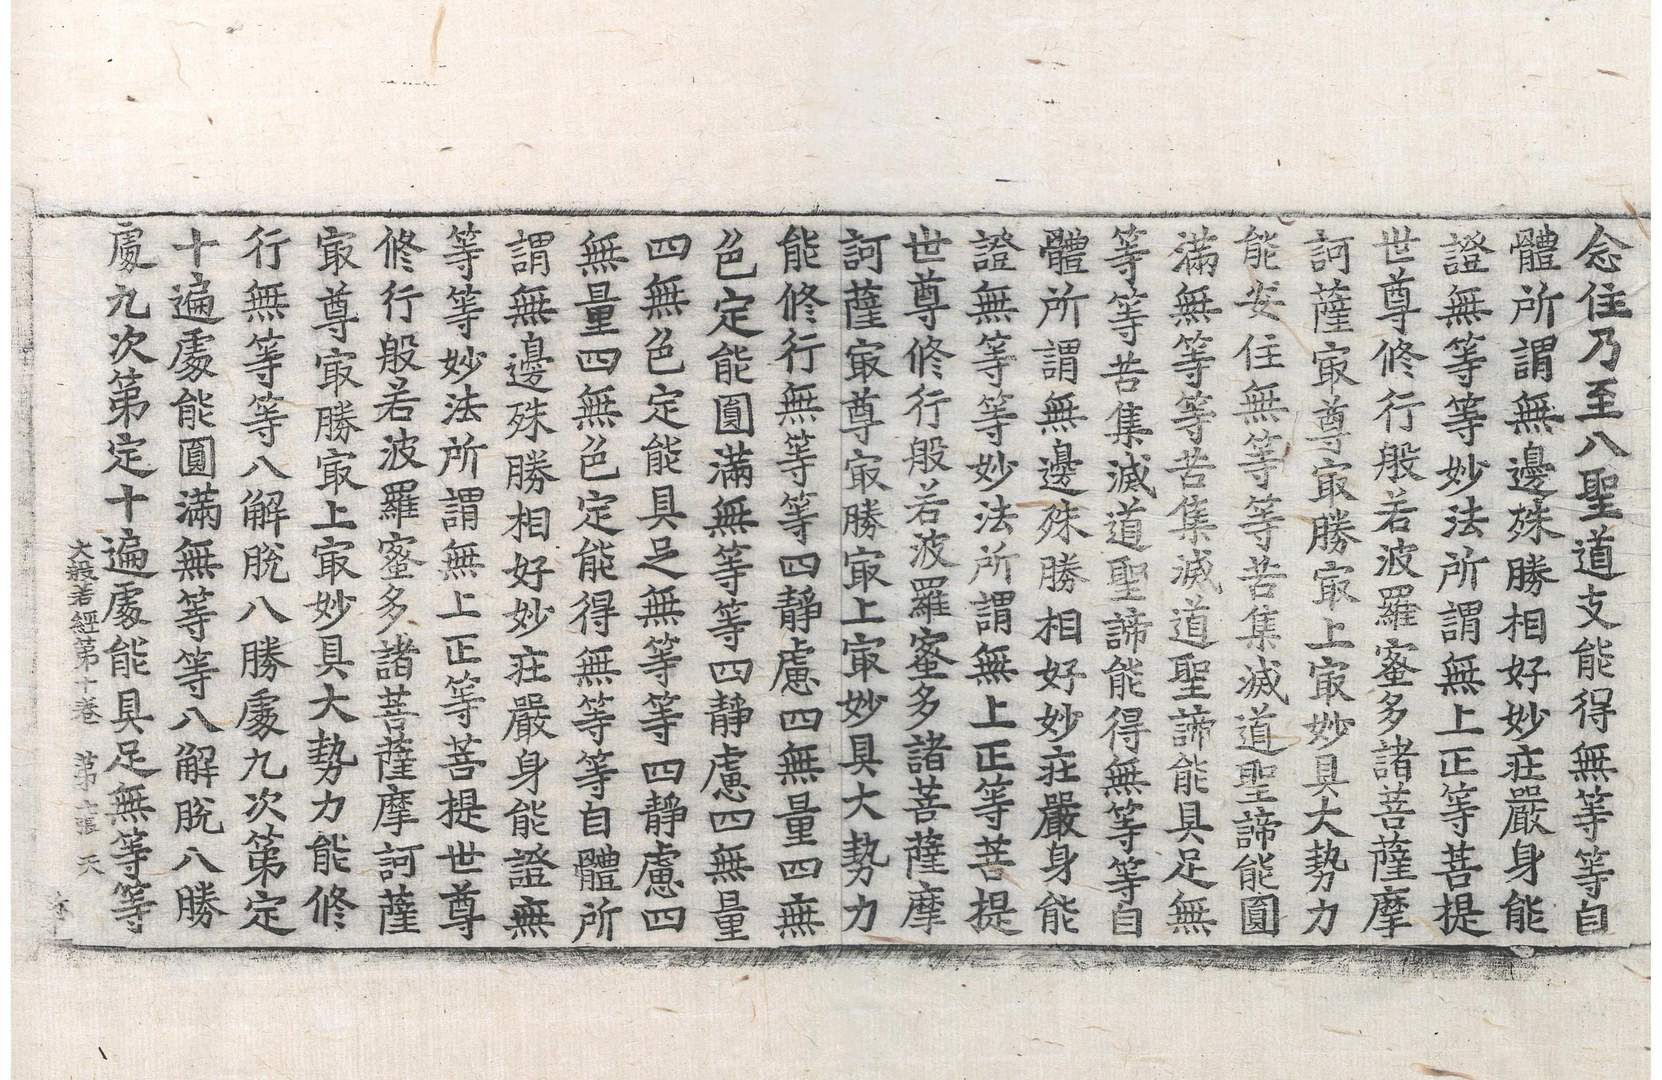 念住乃至八聖道支能得無等等自
體所謂無邊殊勝相好妙莊嚴身能
證無等等妙法所謂無上正等菩提
世尊修行般若波羅蜜多諸菩薩摩
訶薩冣尊冣勝冣上冣妙具大勢力
能安住無等等苦集滅道聖諦能圓
滿無等等苦集滅道聖諦能具足無
等等苦集滅道聖諦能得無等等自
體所謂無邊殊勝相好妙莊嚴身能
證無等等妙法所謂無上正等菩提
世尊修行般若波羅蜜多諸菩薩摩
訶薩冣尊冣勝冣上冣妙具大勢力
能修行無等等四靜慮四無量四無
色定能圓滿無等等四靜慮四無量
四無色定能具足無等等四靜慮四
無量四無色定能得無等等自體所
謂無邊殊勝相好妙莊嚴身能證無
等等妙法所謂無上正等菩提世尊
修行般若波羅蜜多諸菩薩摩訶薩
冣尊冣勝冣上冣妙具大勢力能修
行無等等八解脫八勝處九次第定
十遍處能圓滿無等等八解脫八勝
處九次第定十遍處能具足無等等
大般若經第十卷 第六張 天